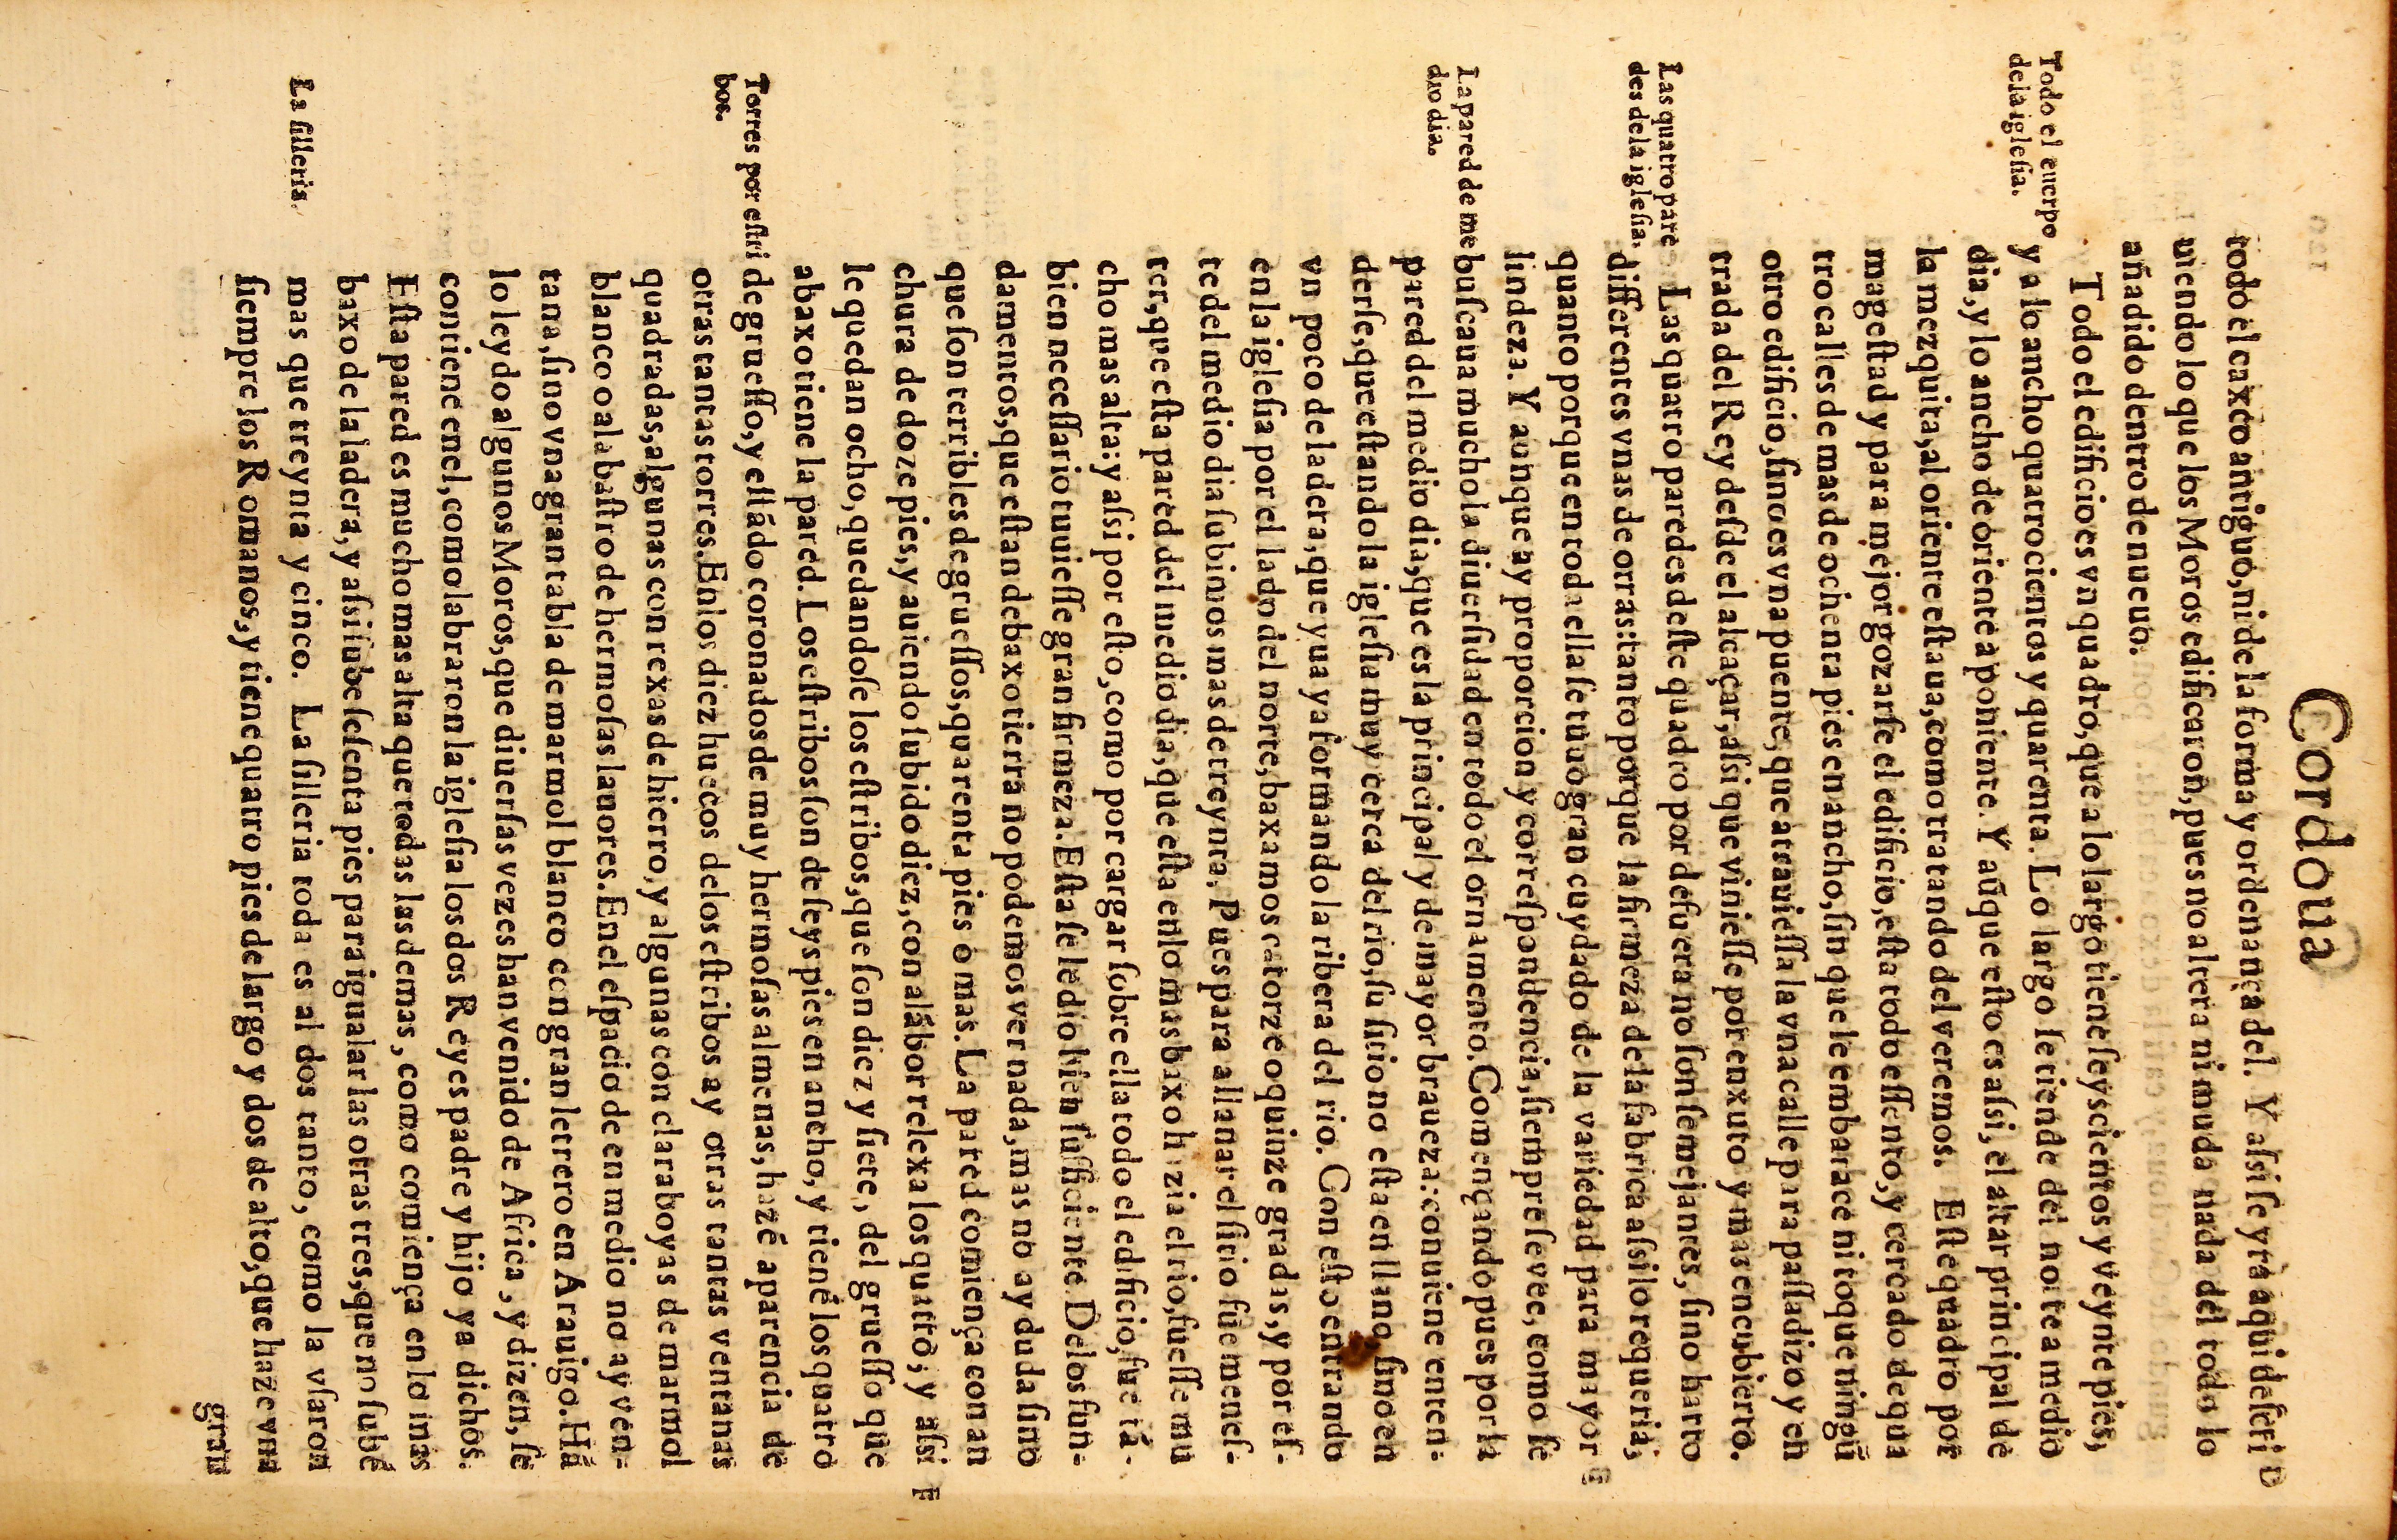 Cordoua
todo el caxco antiguo, ni de la forma y ordenança del. Y aſsi ſe yra aqui deſcri
uiendo lo que los Moros edificaron, pues no altera ni muda nada del todo lo
añadido dentro de nueuo.
Todo el cuerpo
de la igleſia.
Todo el edificio es vn quadro, que a lo largo tiene ſeyscientos y veynte pies,
y a lo ancho quatrocientos y quarenta. Lo largo ſe tiende del norte a medio
dia, y lo ancho de oriente a poniente. Y aũque eſto es aſsi, el altar principal de
la mezquita, al oriente eſtaua, como tratando del veremos. Eſte quadro por
mageſtad y para mejor gozarſe el edificio, eſta todo eſſento, y cercado de qua
tro calles de mas de ochenta pies en ancho, ſin que le embarace ni toque ningũ
otro edificio, ſino es vna puente, que atrauieſſa la vna calle para paſſadizo y en
trada del Rey deſde el alcaçar, aſsi que vinieſſe por enxuto y mas encubierto.
Las quatro pare
des de la igleſia.
Las quatro paredes deſte quadro por defuera no ſon ſemejantes, ſino harto
differentes vnas de otras: tanto porque la firmeza de la fabrica aſsi lo requeria,
quanto porque en toda ella ſe tuuo gran cuydado de la variedad para mayor
lindeza. Y aunque ay proporcion y correſpondencia, ſiempre ſe vee, como ſe
buſcaua mucho la diuerſidad en todo el ornamento. Començando pues por la
La pared de me
dio dia.
pared del medio dia, que es la principal y de mayor braueza: conuiene enten-
derſe, que eſtando la igleſia muy cerca del rio, ſu ſitio no eſta en llano, ſino en
vn poco de ladera, que yua ya formando la ribera del rio. Con eſto entrando
en la igleſia por el lado del norte, baxamos catorze o quinze gradas, y por eſ-
te del medio dia ſubimos mas de treynta. Pues para allanar el ſitio fue meneſ-
ter, que eſta pared del medio dia, que eſta en lo mas baxo hazia el rio, fueſſe mu
cho mas alta: y aſsi por eſto, como por cargar ſobre ella todo el edificio, fue tã-
bien neceſſario tuuieſſe gran firmeza. Eſta ſe le dio bien ſufficiente. De los fun-
damentos, que eſtan debaxo tierra no podemos ver nada, mas no ay duda ſino
que ſon terribles de grueſſos, quarenta pies o mas. La pared comiença con an
chura de doze pies, y auiendo ſubido diez, con alãbor relexa los quatro, y aſsi
le quedan ocho, quedandoſe los eſtribos, que ſon diez y ſiete, del grueſſo que
abaxo tiene la pared. Los eſtribos ſon de ſeys pies en ancho, y tienẽ los quatro
Torres por eſtri
bos.
de grueſſo, y eſtãdo coronados de muy hermoſas almenas, hazẽ aparencia de
otras tantas torres. En los diez huecos de los eſtribos ay otras tantas ventanas
quadradas, algunas con rexas de hierro, y algunas con claraboyas de marmol
blanco o alabaſtro de hermoſas lauores. En el eſpacio de en medio no ay ven-
tana, ſino vna gran tabla de marmol blanco con gran letrero en Arauigo. Hã
lo leydo algunos Moros, que diuerſas vezes han venido de Africa, y dizen, ſe
contiene en el, como labraron la igleſia los dos Reyes padre y hijo ya dichos.
Eſta pared es mucho mas alta que todas las demas, como comiença en lo mas
baxo de la ladera, y aſsi ſube ſeſenta pies para igualar las otras tres, que no ſubẽ
mas que treynta y cinco. La ſilleria toda es al dos tanto, como la vſaron
La ſilleria.
ſiempre los Romanos, y tiene quatro pies de largo y dos de alto, que haze vna
gran